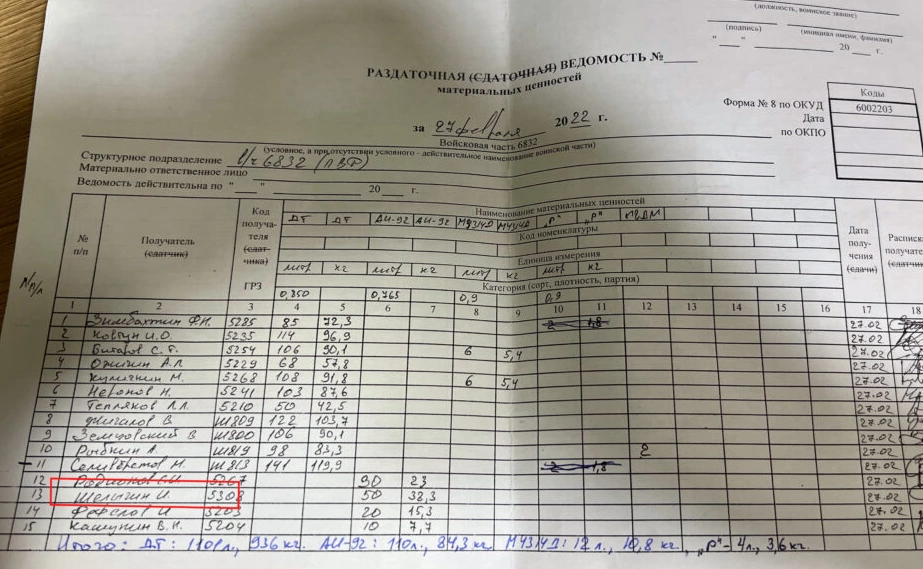 (должность, воинское звание)
(подпись) (инициал имени, фамилия)
" " 20 г.
РАЗДАТОЧНАЯ (СДАТОЧНАЯ) ВЕДОМОСТЬ №
материальных ценностей
Форма № 8 по ОКУД
Дата
по ОКПО
Коды
6002203
за 27 февраля 2022 г.
Войсковая часть 6832
(условное, а при отсутствии условного - действительное наименование воинской части)
Структурное подразделение в/ч 6832
Материально ответственное лицо
Ведомость действительна по " " 20 г.
№ п/п
№ п/п Получатель (сдатчик) Код получателя (сдатчика) ГРЗ Наименование материальных ценностей Дата получения (сдачи)
ДТ ДТ АИ-92 АИ-92 М43/4Д М43/4Д "Р" "Р"
Код номенклатуры
Единица измерения
литр кг литр кг литр кг литр кг
Категория (сорт, плотность, партия)
0,850 0,765 0,9 0,9
1 2 3 4 5 6 7 8 9 10 11 12 13 14 15 16 17 18
1 5285 85 72,3 2 1,8 27.02
2 Ковтун И.О. 5235 114 96,9 27.02
3 Битаров С.Г. 5254 106 90,1 6 5,4 27.02
4 5229 68 57,8 27.02
5 Куличкин М. 5268 108 91,8 6 5,4 27.02
6 Неронов Н. 5241 103 87,6 27.02
7 Тепляков 5210 50 42,5 27.02
8 Жигалов В Ш809 122 103,7 27.02
9 В Ш800 106 90,1 27.02
10 Рыбкин А. Ш819 98 83,3 2 27.02
11 М. Ш813 141 119,9 2 1,8 27.02
12 Родионов 5267 30 23 27.02
13 Шелыгин И. 5308 50 38,3 27.02
14 И 5203 20 15,3 27.02
15 Кашункин В.Н. 5204 10 7,7 27.02
Итого: ДТ: 1101 л., 936 кг. АИ-92: 110 л., 84,3 кг. М43/4Д: 12 л., 10,8 кг., "Р" - 4 л., 3,6 кг.